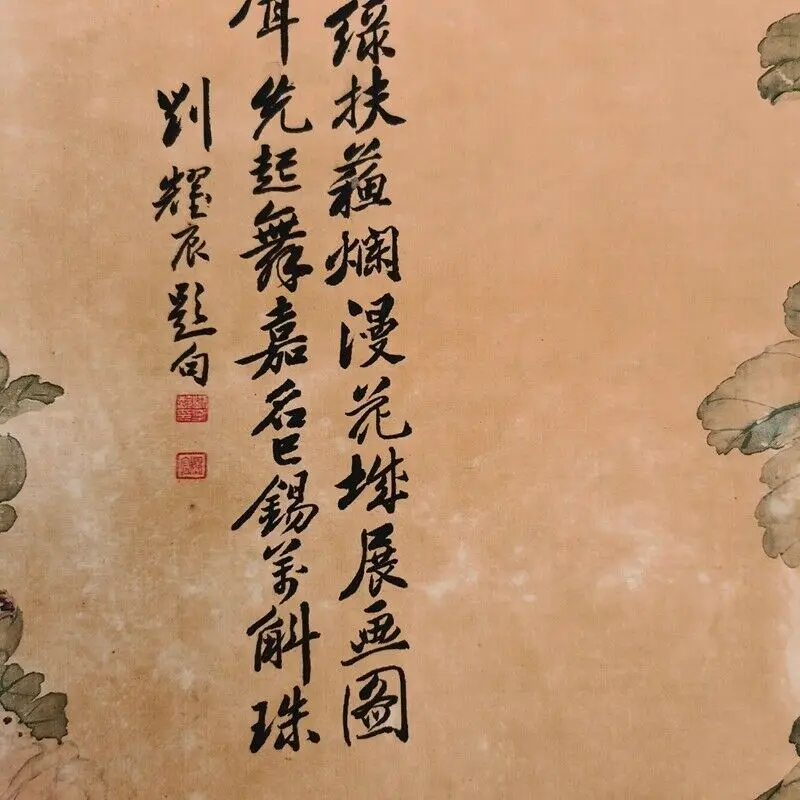 绿扶蘓爛漫花城展画圖
先起舞嘉名已錫萬斛珠
劉耀辰題句